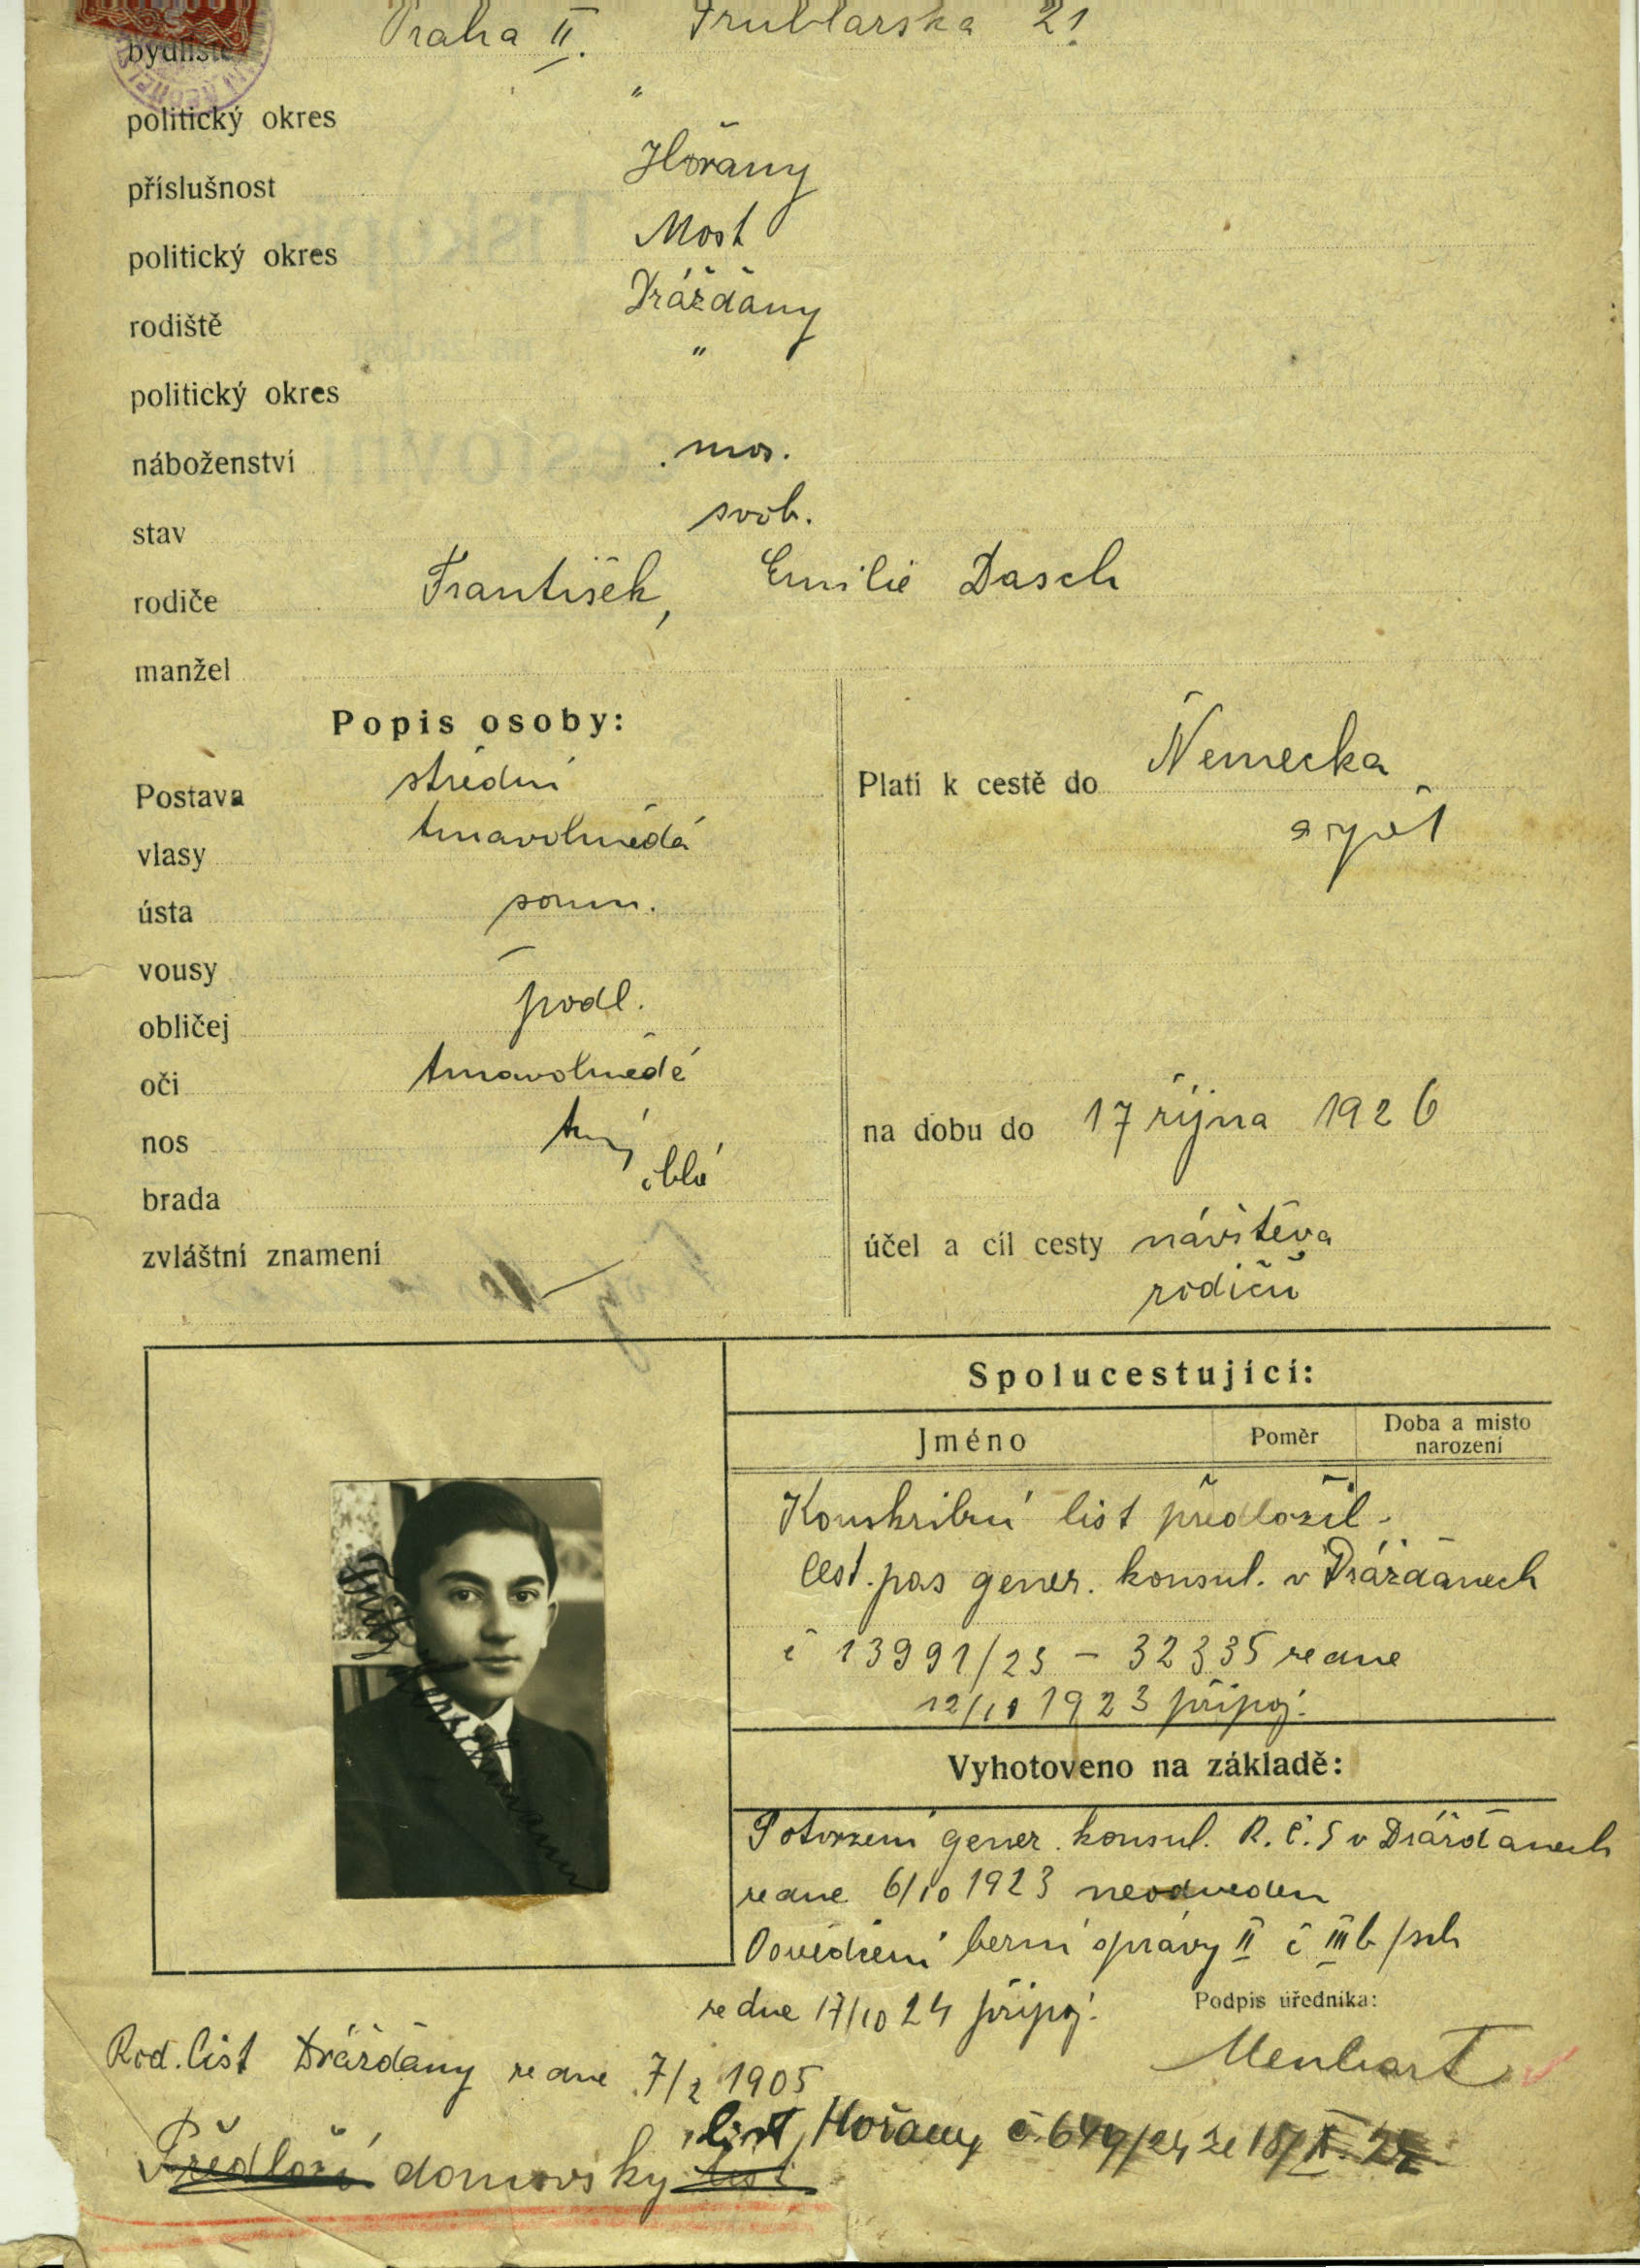 bydliště Praha II. Truhlářská 21
politický okres "
příslušnost Hořany
politický okres Most
rodiště Drážďany
politický okres "
náboženství mos.
stav svob.
rodiče František, Emilie Dasch
manžel
Popis osoby:
Postava střední
vlasy tmavohnědá
ústa soum.
vousy –
obličej podl.
oči tmavohnědé
nos
brada oblá
zvláštní znamení —
Platí k cestě do Německa
a zpět
na dobu do 17 října 1926
účel a cíl cesty návštěva
rodičů
Spolucestující:
Jméno Poměr Doba a místo narození
Konskribní list předložil.
Cest. pas gener. konsul. v Drážďanech
č 13991/23 – 32335 ze dne
12/10 1923 připoj.
Vyhotoveno na základě:
Potvrzení gener. konsul. R.Č.S v Drážďanech
ze dne 6/10 1923 neodveden
Osvědčení berní správy II č IIIb/
ze dne 17/10 24 připoj.
Podpis úředníka:
Menhart
Rod. list Drážďany ze dne 7/2 1905
list, Hořany č. 649/24 ze 18/X. 24
Předloží domovský list